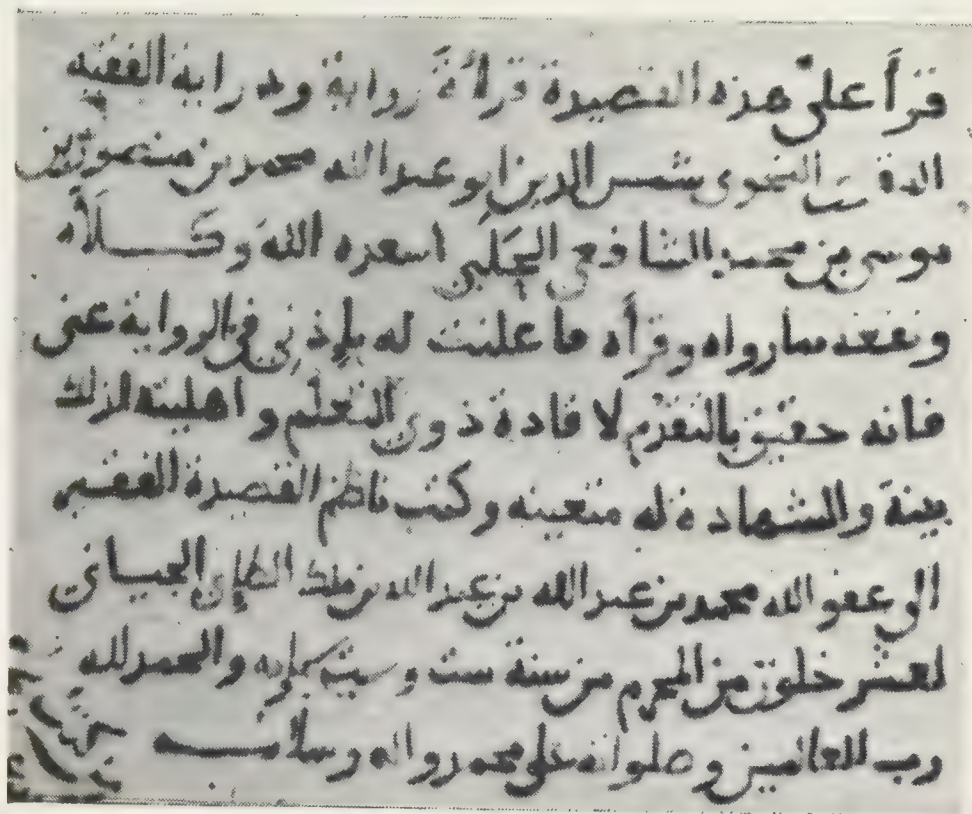 قرأ علي هذه القصيدة قراءة رواية ودراية الفقيه
الثقة الثبت النحوي شمس الدين ابو عبد الله محمد بن منصور بن
موسى بن محمد الشافعي الحلبي اسعده الله وكلأه
ونفعه بما رواه وقرأه ما علنت له باذني في الرواية عني
فانه حقيق بالتقدم لافادة ذوي التعلم و اهليته لذلك
بينة والشهادة له متعينة وكتب ناظم القصيدة الفقير
الى عفو الله محمد بن عبد الله بن عبد الله بن ملك الطائي الجياني
لعشر خلون من المحرم من سنة ست وستين وستمائة والحمد لله
رب العالمين وصلواته على محمد واله وسلامه